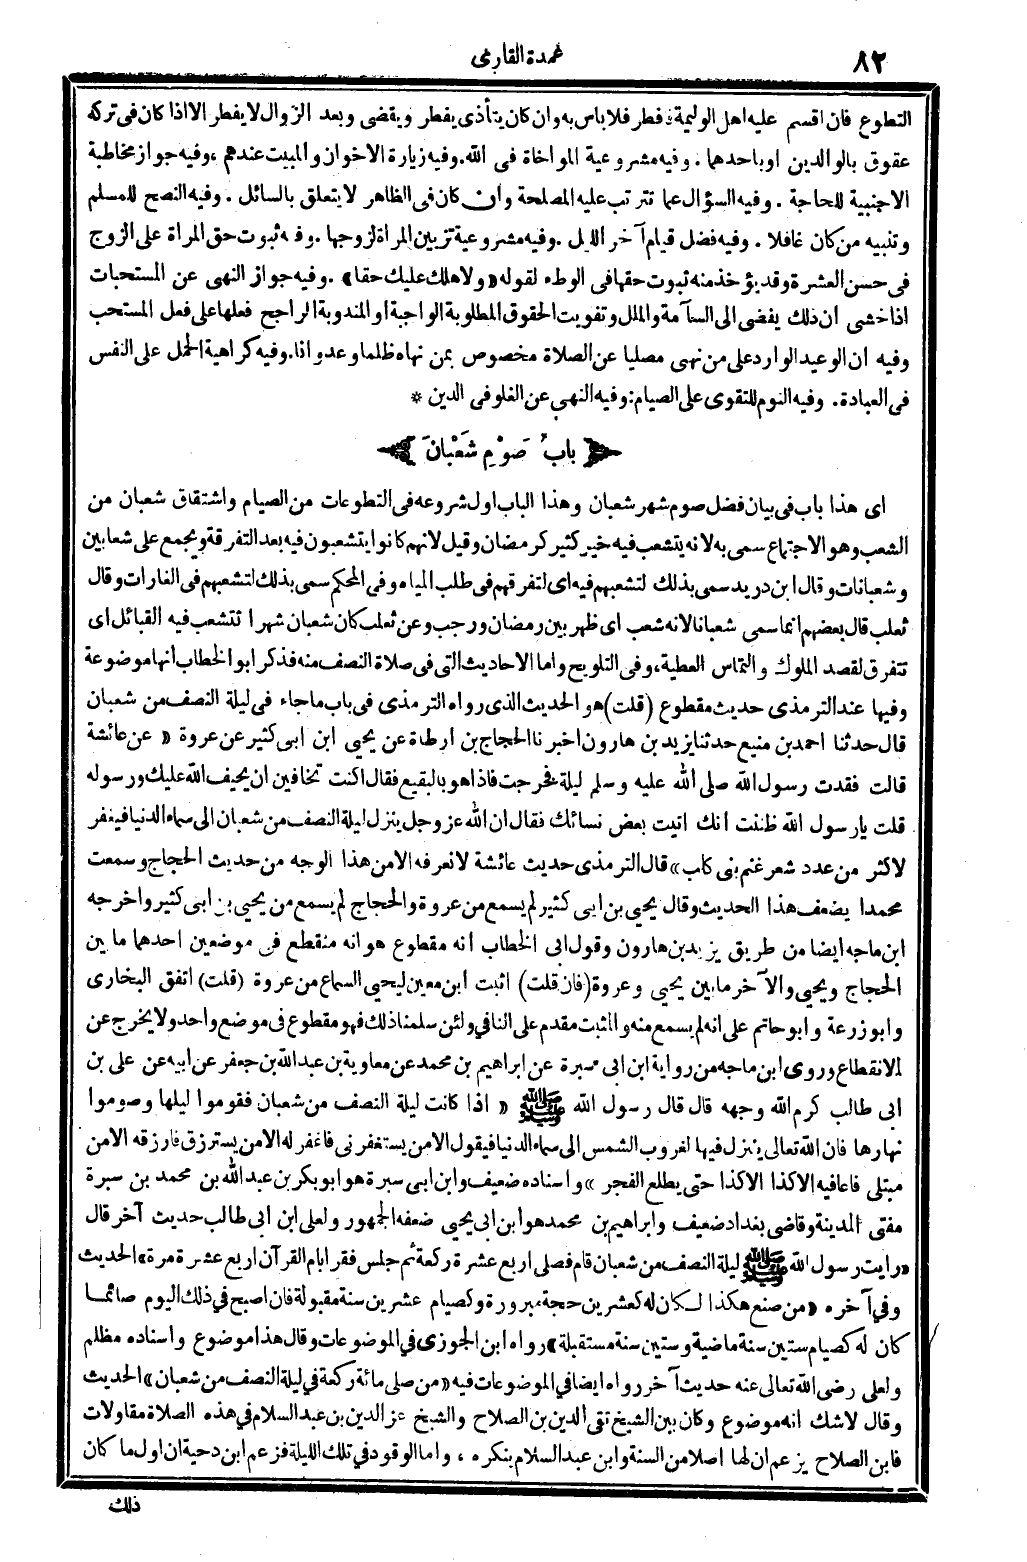 ٨٢
عمدة القارئ
التطوع فان اقسم عليه اهل الوليمة فطر فلا باس به وان كان يتأذى يفطر ويقضى وبعد الزوال لا يفطر الا اذا كان فى تركه
عقوق بالوالدين او باحدهما . وفيه مشروعية المواخاة فى الله. وفيه زيارة الاخوان والمبيت عندهم ، وفيه جواز مخاطبة
الاجنبية للحاجة . وفيه السؤال عما تترتب عليه المصلحة وان كان فى الظاهر لا يتعلق بالسائل . وفيه النصح للمسلم
وتنبيه من كان غافلا . وفيه فضل قيام آخر الليل . وفيه مشروعية تزيين المراة لزوجها . وفيه ثبوت حق المراة على الزوج
فى حسن العشرة وقد يؤخذ منه ثبوت حقها فى الوطء لقوله «ولاهلك عليك حقا» . وفيه جواز النهى عن المستحبات
اذا خشى ان ذلك يفضى الى السآمة والملل وتفويت الحقوق المطلوبة الواجبة او المندوبة الراجح فعلها على فعل المستحب
وفيه ان الوعيد الوارد على من نهى مصليا عن الصلاة مخصوص بمن نهاه ظلما وعدوانا. وفيه كراهية الحمل على النفس
فى العبادة. وفيه النوم للتقوى على الصيام: وفيه النهى عن الغلو فى الدين *
باب صَوْمِ شَعْبَانَ
اى هذا باب فى بيان فضل صوم شهر شعبان وهذا الباب اول شروعه فى التطوعات من الصيام واشتقاق شعبان من
الشعب وهو الاجتماع سمى به لانه يتشعب فيه خير كثير كرمضان وقيل لانهم كانوا يتشعبون فيه بعد التفرقة ويجمع على شعابين
وشعبانات وقال ابن دريد سمى بذلك لتشعبهم فيه اى لتفرقهم فى طلب المياه وفى المحكم سمى بذلك لتشعبهم فى الغارات وقال
ثعلب قال بعضهم انما سمى شعبانا لانه شعب اى ظهر بين رمضان ورجب وعن ثعلب كان شعبان شهرا تتشعب فيه القبائل اى
تتفرق لقصد الملوك والتماس العطية، وفى التلويح واما الاحاديث التى فى صلاة النصف منه فذكر ابو الخطاب انها موضوعة
وفيها عند الترمذى حديث مقطوع (قلت) هو الحديث الذى رواه الترمذى فى باب ماجاء فى ليلة النصف من شعبان
قال حدثنا احمد بن منيع حدثنا يزيد بن هارون اخبرنا الحجاج بن ارطاة عن يحيى ابن ابى كثير عن عروة « عن عائشة
قالت فقدت رسول الله صلى الله عليه وسلم ليلة فخرجت فاذا هو بالبقيع فقال اكنت تخافين ان يحيف الله عليك ورسوله
قلت يارسول الله ظننت انك اتيت بعض نسائك فقال ان الله عز وجل ينزل ليلة النصف من شعبان الى سماء الدنيا فيغفر
لاكثر من عدد شعر غنم بنى كلب» قال الترمذى حديث عائشة لا نعرفه الا من هذا الوجه من حديث الحجاج وسمعت
محمدا يضعف هذا الحديث وقال يحيى بن ابى كثير لم يسمع من عروة والحجاج لم يسمع من يحيى بن ابى كثير واخرجه
ابن ماجه ايضا من طريق يزيد بن هارون وقول ابى الخطاب انه مقطوع هو انه منقطع فى موضعين احدهما ما بين
الحجاج ويحيى والآخر مابين يحيى وعروة (فان قلت) اثبت ابن معين ليحيى السماع من عروة (قلت) اتفق البخارى
وابو زرعة وابو حاتم على انه لم يسمع منه والمثبت مقدم على النافى ولئن سلمنا ذلك فهو مقطوع فى موضع واحد ولا يخرج عن
الانقطاع وروى ابن ماجه من رواية ابن ابى سبرة عن ابراهيم بن محمد عن معاوية بن عبد الله بن جعفر عن ابيه عن على بن
ابى طالب كرم الله وجهه قال قال رسول الله ﷺ « اذا كانت ليلة النصف من شعبان فقوموا ليلها وصوموا
نهارها فان الله تعالى ينزل فيها لغروب الشمس الى سماء الدنيا فيقول الا من يستغفرنى فاغفر له الا من يسترزق فارزقه الا من
مبتلى فاعافيه الا كذا الا كذا حتى يطلع الفجر » واسناده ضعيف وابن ابى سبرة هو ابو بكر بن عبد الله بن محمد بن سبرة
مفتى المدينة وقاضى بغداد ضعيف وابراهيم بن محمد هو ابن ابى يحيى ضعفه الجمهور ولعلى ابن ابى طالب حديث آخر قال
«رايت رسول الله ﷺ ليلة النصف من شعبان قام فصلى اربع عشرة ركعة ثم جلس فقرا بام القرآن اربع عشرة مرة» الحديث
وفى آخره «من صنع هكذا لكان له كعشرين حجة مبرورة وكصيام عشرين سنة مقبولة فان اصبح فى ذلك اليوم صائما
كان له كصيام ستين سنة ماضية وستين سنة مستقبلة» رواه ابن الجوزى فى الموضوعات وقال هذا موضوع واسناده مظلم
ولعلى رضى الله تعالى عنه حديث آخر رواه ايضا فى الموضوعات فيه «من صلى مائة ركعة فى ليلة النصف من شعبان» الحديث
وقال لاشك انه موضوع وكان بين الشيخ تقى الدين بن الصلاح والشيخ عز الدين بن عبد السلام فى هذه الصلاة مقاولات
فابن الصلاح يزعم ان لها اصلا من السنة وابن عبد السلام ينكره ، واما الوقود فى تلك الليلة فزعم ابن دحية ان اول ما كان
ذلك